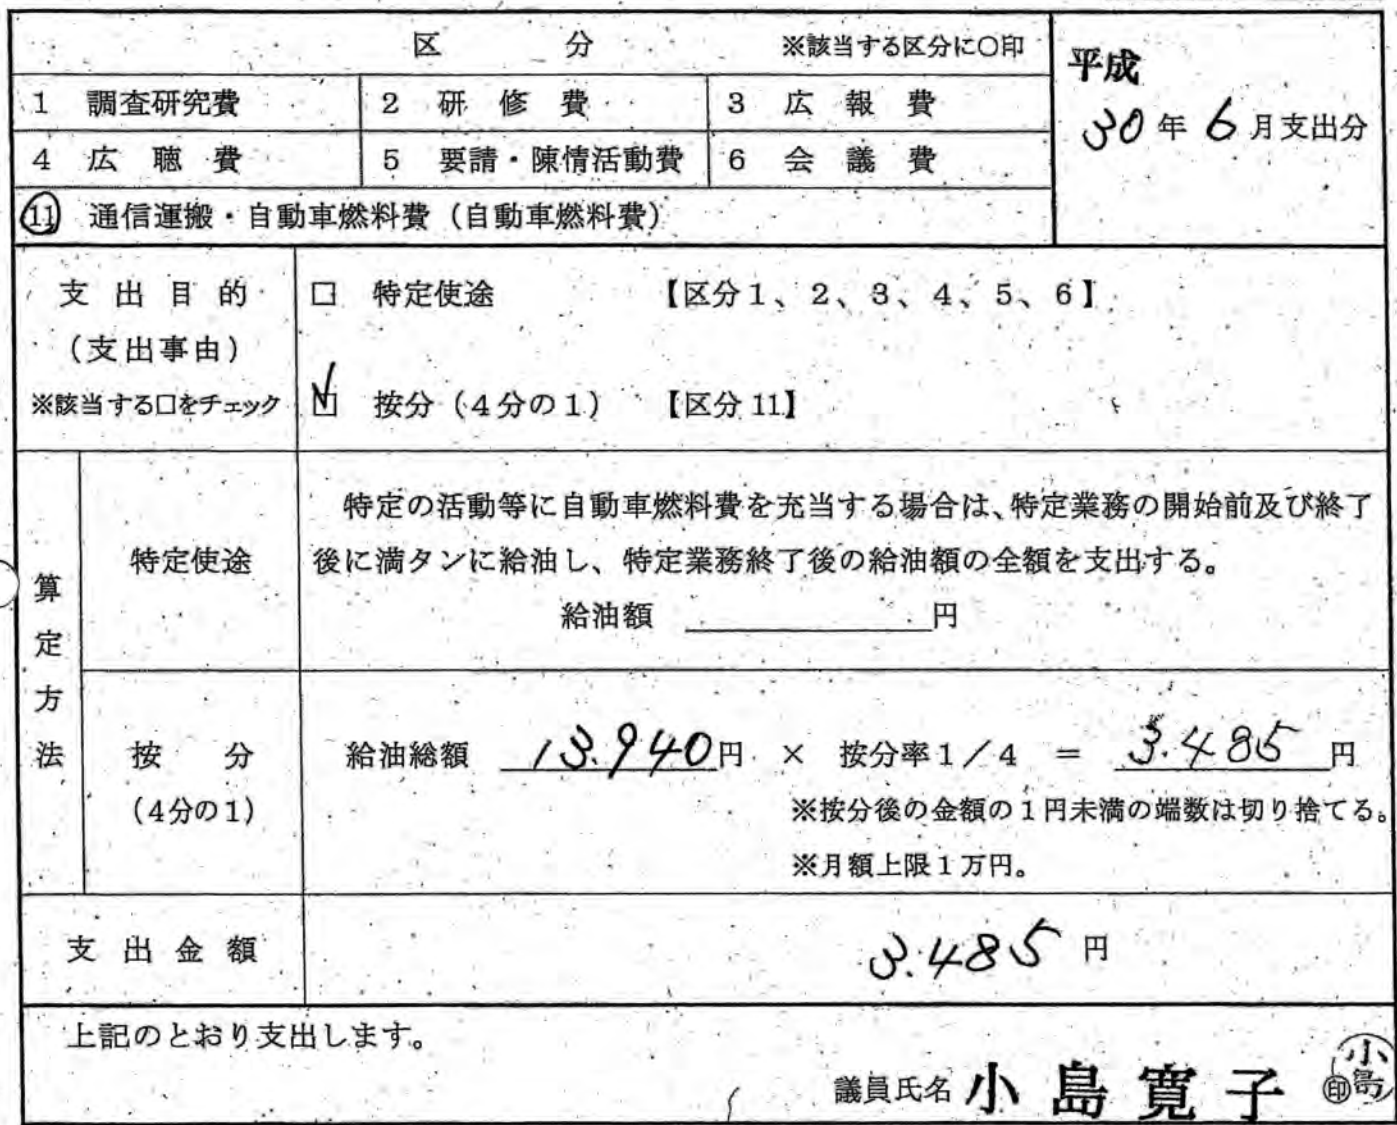 区 分 ※該当する区分に○印
平成
30年 6月支出分
1 調査研究費 2 研修費 3 広報費
4 広聴費 5 要請・陳情活動費 6 会議費
⑪ 通信運搬・自動車燃料費(自動車燃料費)
支出目的
(支出事由)
※該当する□をチェック
□ 特定使途 【区分1、2、3、4、5、6】
☑ 按分(4分の1) 【区分11】
算定方法
特定使途
特定の活動等に自動車燃料費を充当する場合は、特定業務の開始前及び終了
後に満タンに給油し、特定業務終了後の給油額の全額を支出する。
給油額 円
按分
(4分の1)
給油総額 13.940円 × 按分率1/4 = 3.485円
※按分後の金額の1円未満の端数は切り捨てる。
※月額上限1万円。
支出金額 3.485円
上記のとおり支出します。
議員氏名 小島寛子 ㊞ 小島